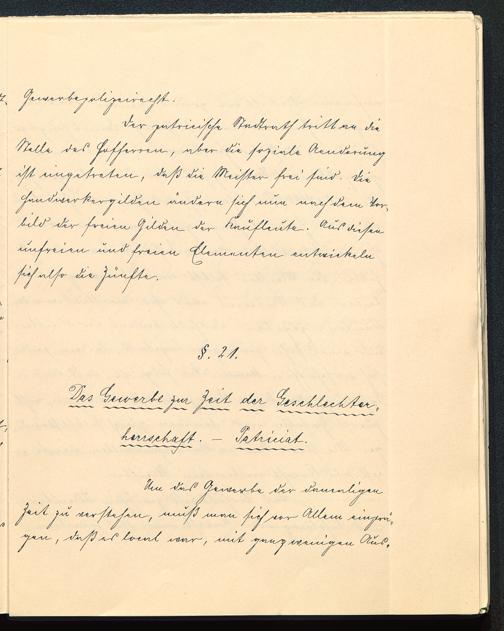 Gewerbepolizeirecht.
Der patricische Stadtrath tritt an die
Stelle des Hofherren, aber die soziale Aenderung
ist eingetreten, daß die Meister frei sind. Die
Handwerkergilden ändern sich nun nach dem Vor-
bild der freien Gilden der Kaufleute. Aus diesen
unfreien und freien Elementen entwickeln
sich also die Zünfte.
§. 21.
Das Gewerbe zur Zeit der Geschlechter-
herrschaft. – Patriciat.
Um das Gewerbe der damaligen
Zeit zu verstehen, muß man sich vor Allem einprä-
gen, daß es local war, mit ganz wenigen Aus-